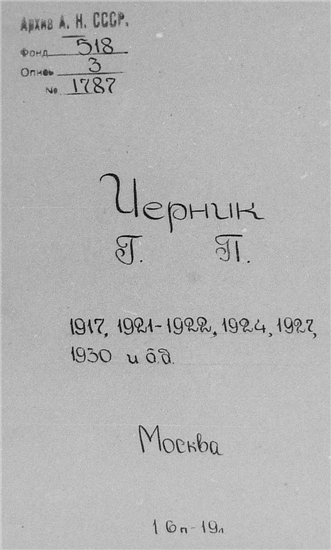 Архив А. Н. СССР.
Фонд 518
Опись 3
№ 1787
Черник
Г. П.
1917, 1921-1922, 1924, 1927,
1930 и б.д.
Москва
16п-19л